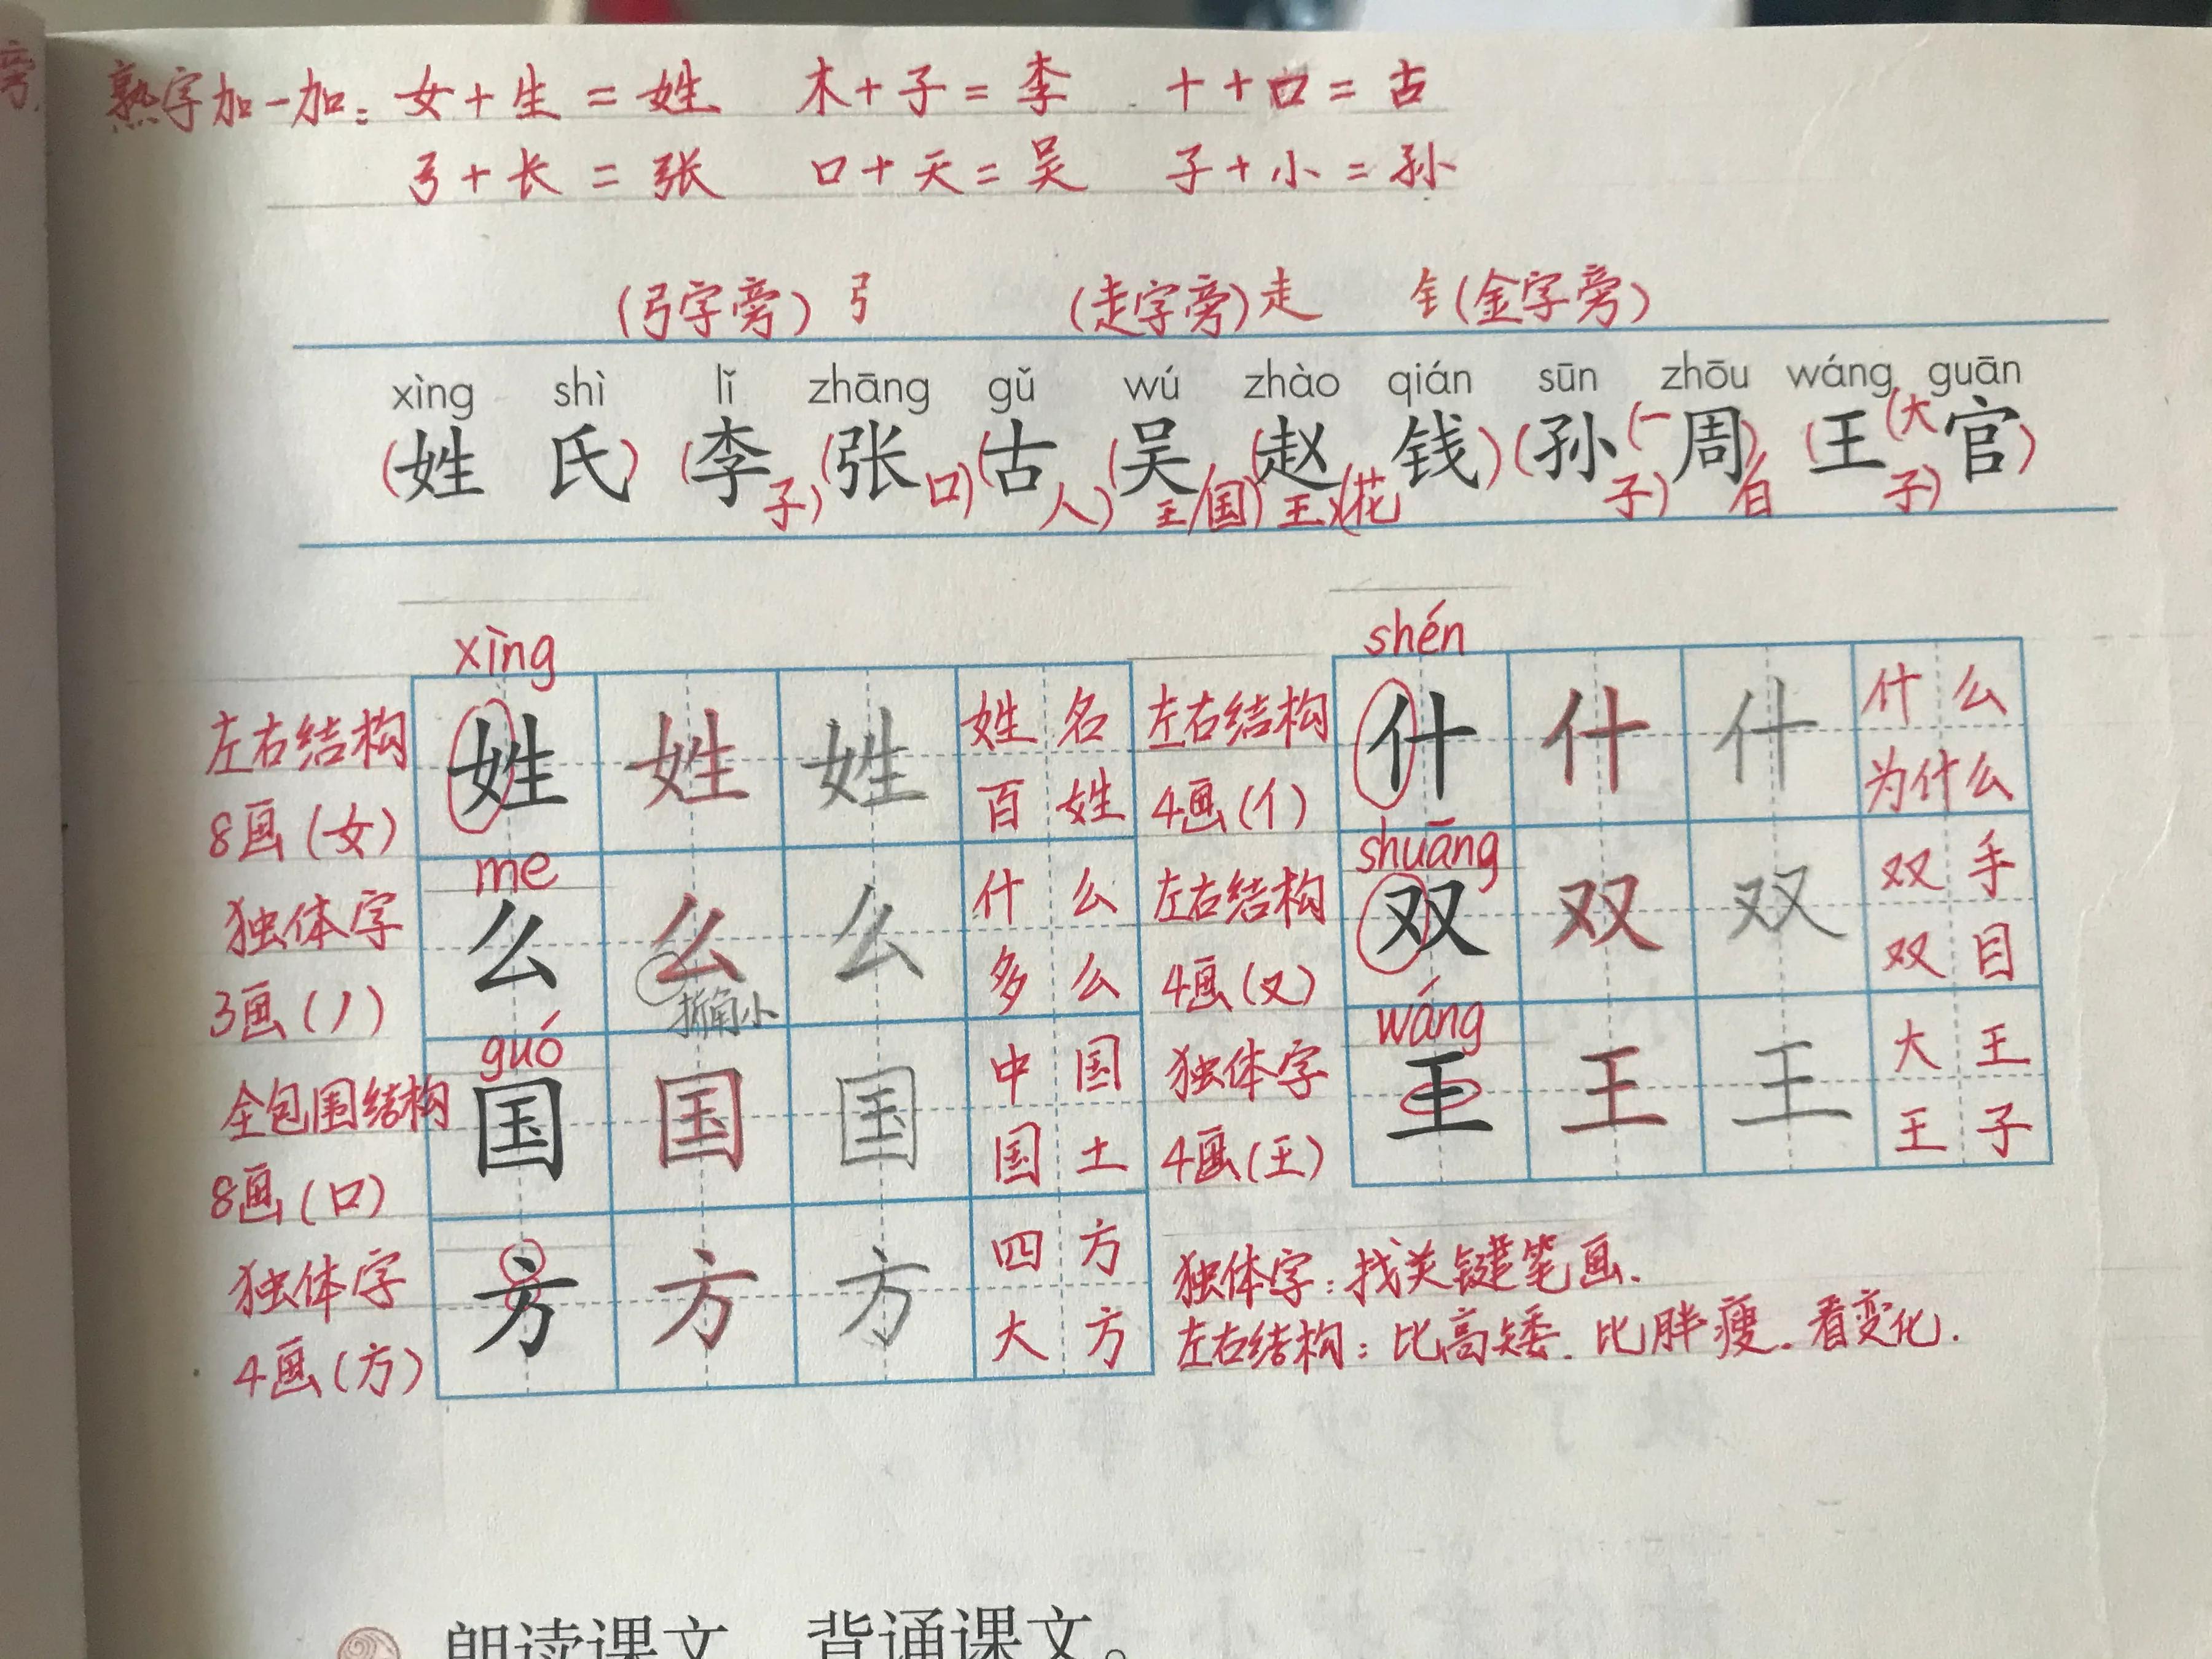 熟字加一加：女+生=姓 木+子=李 十+口=古
弓+长=张 口+天=吴 子+小=孙
(弓字旁)弓 (走字旁)走 钅(金字旁)
xìng shì lǐ zhāng gǔ wú zhào qián sūn zhōu wáng guān
(姓 氏) (李子) (张口) (古人) (吴王/国) (赵王) (花钱) (孙子) (一周/日) (王子) (大官)
xìng shén
左右结构 姓 姓 姓 姓名 左右结构 什 什 什 什么
8画(女) 百姓 4画(亻) 为什么
me shuāng
独体字 么 么 么 什么 左右结构 双 双 双 双手
3画(丿) 折角小 多么 4画(又) 双目
guó wáng
全包围结构 国 国 国 中国 独体字 王 王 王 大王
8画(口) 国土 4画(王) 王子
独体字 方 方 方 四方 独体字：找关键笔画.
4画(方) 大方 左右结构：比高矮.比胖瘦.看变化.
朗读课文 背诵课文。